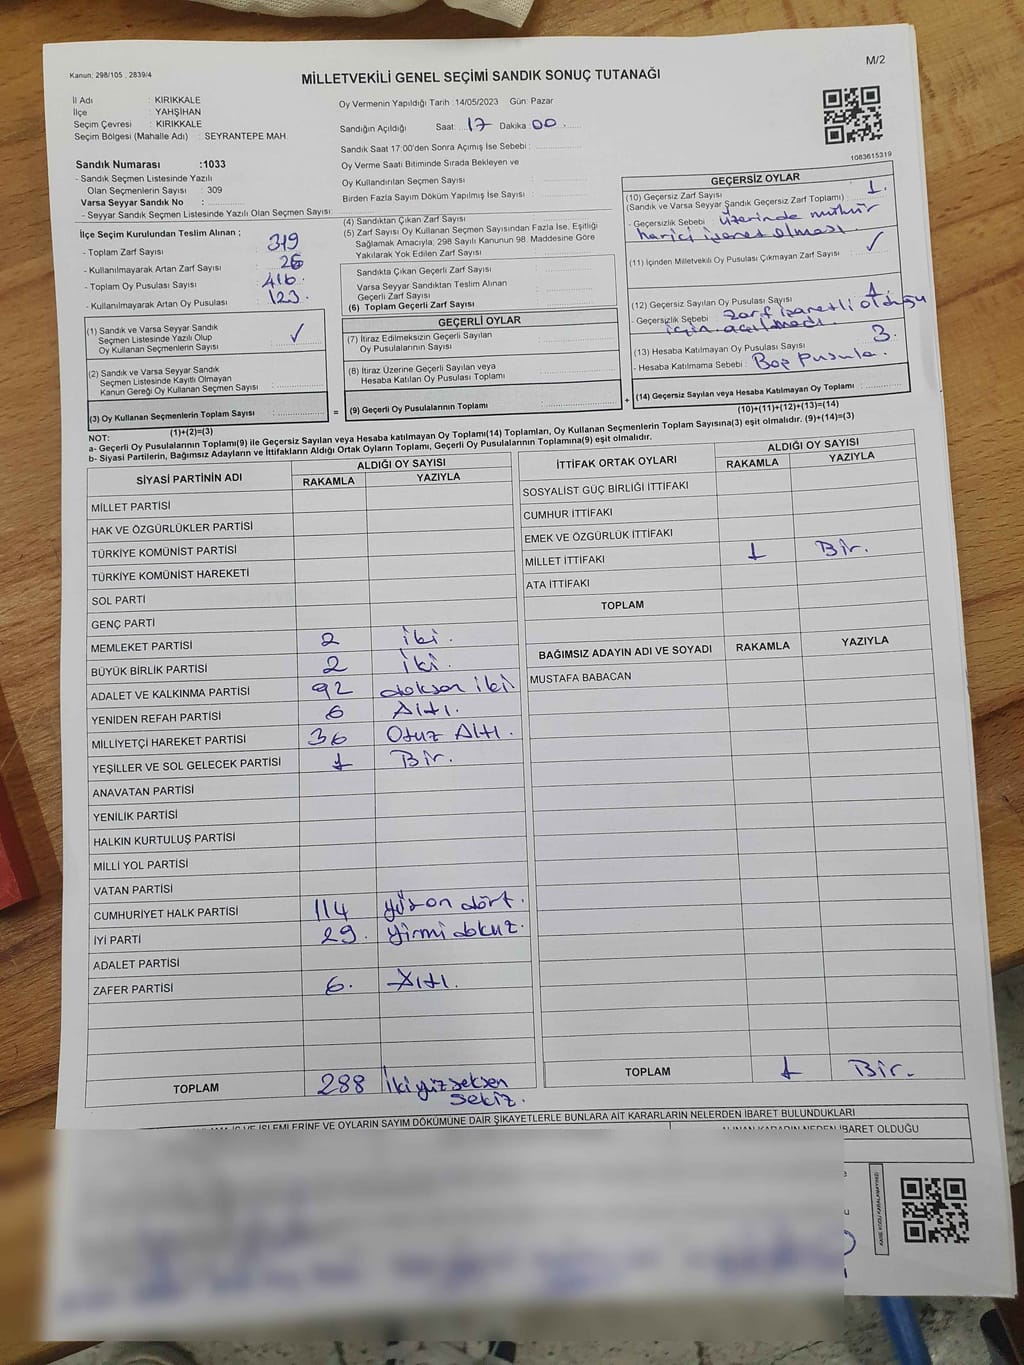 Kanun: 298/105 , 2839/4
M/2
MİLLETVEKİLİ GENEL SEÇİMİ SANDIK SONUÇ TUTANAĞI
İl Adı : KIRIKKALE
İlçe : YAHŞİHAN
Seçim Çevresi : KIRIKKALE
Seçim Bölgesi (Mahalle Adı) : SEYRANTEPE MAH.
Sandık Numarası :1033
- Sandık Seçmen Listesinde Yazılı
Olan Seçmenlerin Sayısı : 309
Varsa Seyyar Sandık No :
- Seyyar Sandık Seçmen Listesinde Yazılı Olan Seçmen Sayısı:
İlçe Seçim Kurulundan Teslim Alınan ;
- Toplam Zarf Sayısı : 319
- Kullanılmayarak Artan Zarf Sayısı : 26
- Toplam Oy Pusulası Sayısı : 416.
- Kullanılmayarak Artan Oy Pusulası : 123.
(1) Sandık ve Varsa Seyyar Sandık
Seçmen Listesinde Yazılı Olup
Oy Kullanan Seçmenlerin Sayısı : ✓
(2) Sandık ve Varsa Seyyar Sandık
Seçmen Listesinde Kayıtlı Olmayan
Kanun Gereği Oy Kullanan Seçmen Sayısı :
(3) Oy Kullanan Seçmenlerin Toplam Sayısı :
(1)+(2)=(3)
Oy Vermenin Yapıldığı Tarih :14/05/2023 Gün: Pazar
Sandığın Açıldığı Saat: 17 Dakika 00
Sandık Saat 17:00'den Sonra Açılmış İse Sebebi :
Oy Verme Saati Bitiminde Sırada Bekleyen ve
Oy Kullandırılan Seçmen Sayısı :
Birden Fazla Sayım Döküm Yapılmış İse Sayısı :
(4) Sandıktan Çıkan Zarf Sayısı :
(5) Zarf Sayısı Oy Kullanan Seçmen Sayısından Fazla İse, Eşitliği
Sağlamak Amacıyla; 298 Sayılı Kanunun 98. Maddesine Göre
Yakılarak Yok Edilen Zarf Sayısı :
Sandıkta Çıkan Geçerli Zarf Sayısı :
Varsa Seyyar Sandıktan Teslim Alınan
Geçerli Zarf Sayısı :
(6) Toplam Geçerli Zarf Sayısı :
GEÇERLİ OYLAR
(7) İtiraz Edilmeksizin Geçerli Sayılan
Oy Pusulalarının Sayısı :
(8) İtiraz Üzerine Geçerli Sayılan veya
Hesaba Katılan Oy Pusulası Toplamı :
= (9) Geçerli Oy Pusulalarının Toplamı : +
1083615319
GEÇERSİZ OYLAR
(10) Geçersiz Zarf Sayısı : 1.
(Sandık ve Varsa Seyyar Sandık Geçersiz Zarf Toplamı)
- Geçersizlik Sebebi : üzerinde mühür
harici işaret olması.
(11) İçinden Milletvekili Oy Pusulası Çıkmayan Zarf Sayısı : ✓
(12) Geçersiz Sayılan Oy Pusulası Sayısı : 1.
- Geçersizlik Sebebi : Zarf işaretli olduğu
için açılmadı.
(13) Hesaba Katılmayan Oy Pusulası Sayısı : 3.
- Hesaba Katılmama Sebebi : Boş pusula.
(14) Geçersiz Sayılan veya Hesaba Katılmayan Oy Toplamı :
(10)+(11)+(12)+(13)=(14)
NOT:
a- Geçerli Oy Pusulalarının Toplamı(9) ile Geçersiz Sayılan veya Hesaba katılmayan Oy Toplamı(14) Toplamları, Oy Kullanan Seçmenlerin Toplam Sayısına(3) eşit olmalıdır. (9)+(14)=(3)
b- Siyasi Partilerin, Bağımsız Adayların ve İttifakların Aldığı Ortak Oyların Toplamı, Geçerli Oy Pusulalarının Toplamına(9) eşit olmalıdır.
SİYASİ PARTİNİN ADI
ALDIĞI OY SAYISI
RAKAMLA YAZIYLA
MİLLET PARTİSİ
HAK VE ÖZGÜRLÜKLER PARTİSİ
TÜRKİYE KOMÜNİST PARTİSİ
TÜRKİYE KOMÜNİST HAREKETİ
SOL PARTİ
GENÇ PARTİ
MEMLEKET PARTİSİ 2 iki.
BÜYÜK BİRLİK PARTİSİ 2 iki.
ADALET VE KALKINMA PARTİSİ 92 doksan iki
YENİDEN REFAH PARTİSİ 6 Altı.
MİLLİYETÇİ HAREKET PARTİSİ 36 Otuz Altı.
YEŞİLLER VE SOL GELECEK PARTİSİ 1 Bir.
ANAVATAN PARTİSİ
YENİLİK PARTİSİ
HALKIN KURTULUŞ PARTİSİ
MİLLİ YOL PARTİSİ
VATAN PARTİSİ
CUMHURİYET HALK PARTİSİ 114 yüz on dört.
İYİ PARTİ 29. yirmi dokuz.
ADALET PARTİSİ
ZAFER PARTİSİ 6. Altı.
TOPLAM 288 İki yüz seksen
sekiz.
İTTİFAK ORTAK OYLARI
ALDIĞI OY SAYISI
RAKAMLA YAZIYLA
SOSYALİST GÜÇ BİRLİĞİ İTTİFAKI
CUMHUR İTTİFAKI
EMEK VE ÖZGÜRLÜK İTTİFAKI
MİLLET İTTİFAKI 1 Bir.
ATA İTTİFAKI
TOPLAM
BAĞIMSIZ ADAYIN ADI VE SOYADI RAKAMLA YAZIYLA
MUSTAFA BABACAN
TOPLAM 1 Bir.
İŞLEMLERİNE VE OYLARIN SAYIM DÖKÜMÜNE DAİR ŞİKAYETLERLE BUNLARA AİT KARARLARIN NELERDEN İBARET BULUNDUKLARI
ALINAN KARARIN NEDEN İBARET OLDUĞU